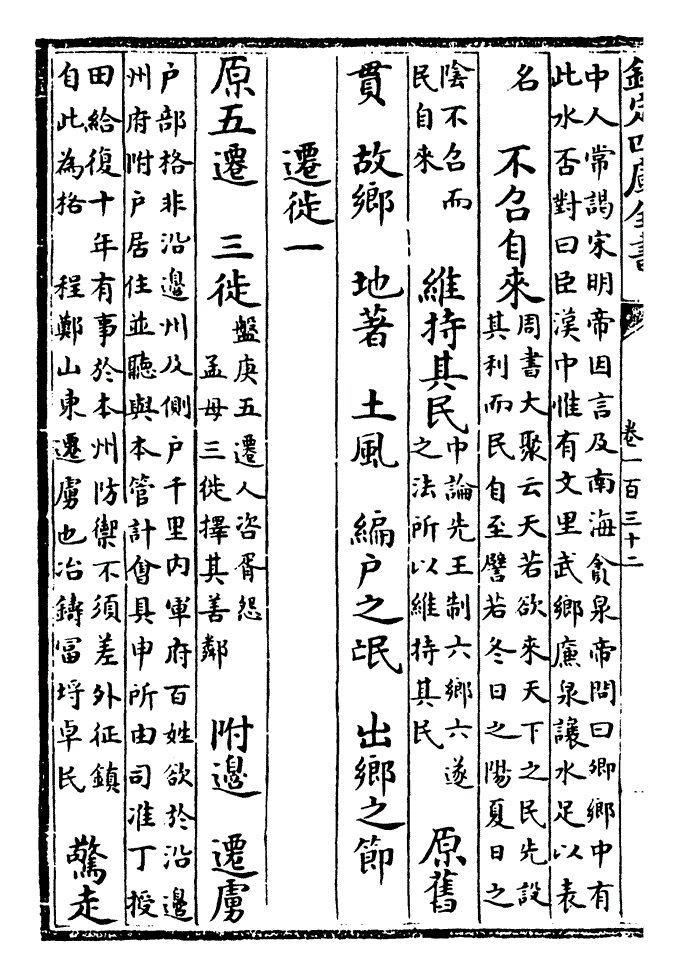 欽定四庫全書 卷一百三十二
中人常謁宋明帝因言及南海貪泉帝問曰卿鄉中有
此水否對曰臣漢中惟有文里武鄉廉泉讓水足以表
名 不召自來 周書大聚云天若欲來天下之民先設
其利而民自至譬若冬日之陽夏日之
陰不召而
民自來 維持其民 中論先王制六鄉六遂
之法所以維持其民 原舊
貫 故鄉 地著 土風 編戶之氓 出鄉之節
遷徙一
原五遷 三徙 盤庚五遷人咨胥怨
孟母三徙擇其善鄰 附邊 遷虜
戶部格非沿邊州及側戶千里内軍府百姓欲於沿邊
州府附戶居住並聽與本管計會具申所由司准丁授
田給復十年有事於本州防禦不須差外征鎮
自此為格 程鄭山東遷虜也冶鑄冨埒卓民 驚走